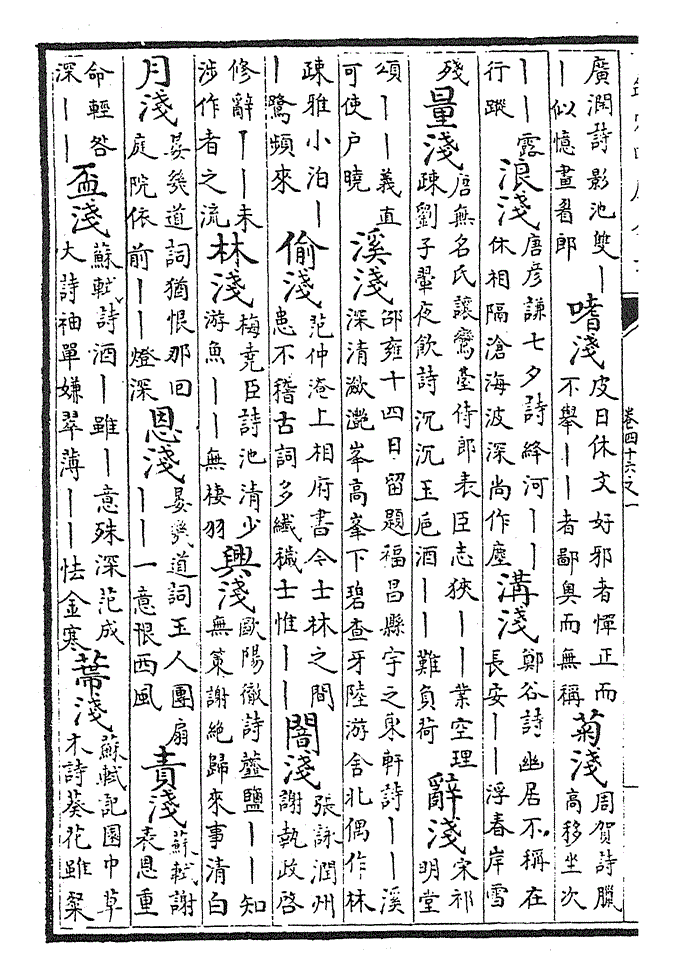 卷四十六之一
廣潤詩影池雙丨
丨似憶畫眉郎
嗜淺
皮日休文好邪者憚正而
不舉丨丨者鄙奧而無稱
菊淺
周賀詩臘
高移坐次
丨丨露
行蹤
浪淺
唐彥謙七夕詩絳河丨丨
休相隔滄海波深尚作塵
溝淺
鄭谷詩幽居不稱在
長安丨丨浮春岸雪
殘
量淺
唐無名氏讓鸞臺侍郎表臣志狹丨丨業空理
疎劉子翬夜飲詩沉沉玉巵酒丨丨難負荷
辭淺
宋祁
明堂
頌丨丨義直
可使户曉
溪淺
邵雍十四日留題福昌縣宇之東軒詩丨丨溪
深清瀲灔峯高峯下碧查牙陸游舍北偶作林
疎雅小泊丨
丨鷺頻來
偷淺
范仲淹上相府書令士林之間
患不稽古詞多纖穢士惟丨丨
闇淺
張詠潤州
謝執政啓
修辭丨丨未
涉作者之流
林淺
梅堯臣詩池清少
游魚丨丨無棲羽
興淺
歐陽徹詩虀鹽丨丨知
無策謝絶歸來事清白
月淺
晏幾道詞猶恨那回
庭院依前丨丨燈深
恩淺
晏幾道詞玉人團扇
丨丨一意恨西風
責淺
蘇軾謝
表恩重
命輕咎
深丨丨
盃淺
蘇軾詩酒丨雖丨意殊深范成
大詩袖單嫌翠薄丨丨怯金寒
蒂淺
蘇軾記園中草
木詩葵花雖粲